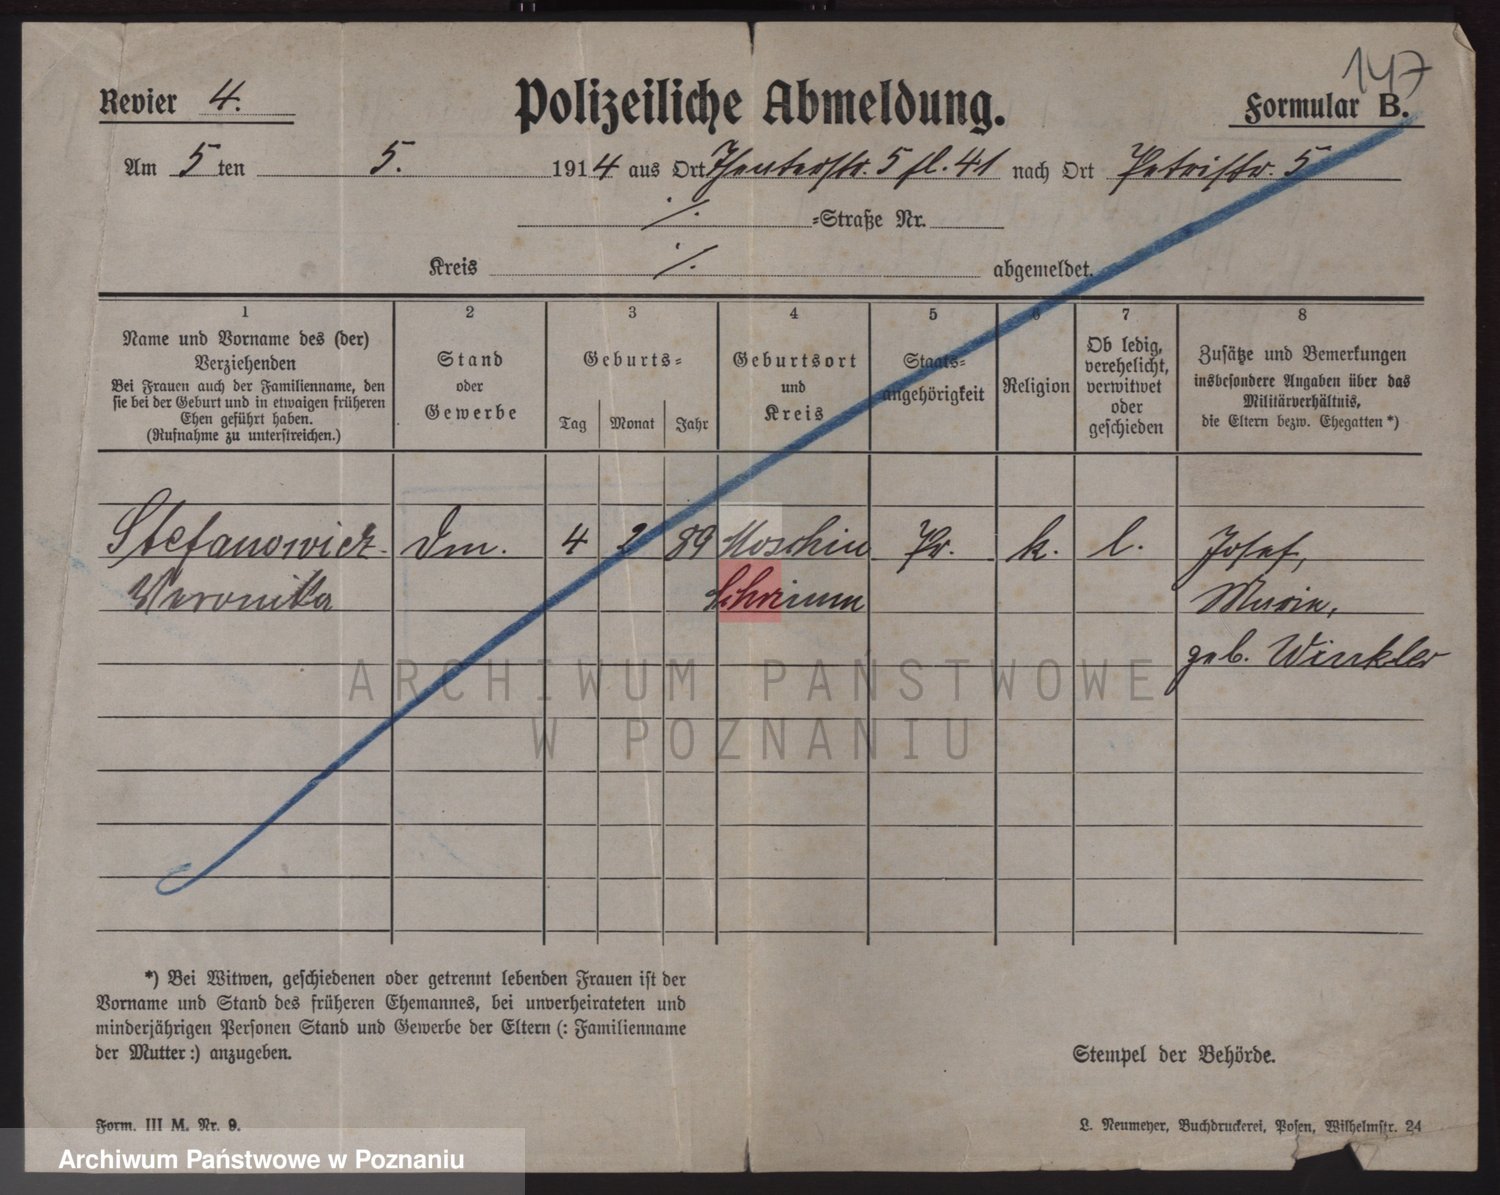 147
Revier 4.
Polizeiliche Abmeldung.
Formular B.
Am 5 ten 5. 1914 aus Ort Theaterstr. 5 fl. 41 nach Ort Petristr. 5
./. =Straße Nr.
Kreis ./. abgemeldet.
1 2 3 4 5 6 7 8
Name und Vorname des (der)
Verziehenden
Bei Frauen auch der Familienname, den
sie bei der Geburt und in etwaigen früheren
Ehen geführt haben.
(Rufnahme zu unterstreichen.)
Stand
oder
Gewerbe
Geburts=
Tag Monat Jahr
Geburtsort
und
Kreis
Staats=
angehörigkeit
Religion
Ob ledig,
verehelicht,
verwitwet
oder
geschieden
Zusätze und Bemerkungen
insbesondere Angaben über das
Militärverhältnis,
die Eltern bezw. Ehegatten *)
Stefanowicz Dm. 4 2 89 Moschin Pr. k. l. Josef,
Veronika Schrimm Marie,
geb. Winkler
ARCHIWUM PAŃSTWOWE
W POZNANIU
*) Bei Witwen, geschiedenen oder getrennt lebenden Frauen ist der
Vorname und Stand des früheren Ehemannes, bei unverheirateten und
minderjährigen Personen Stand und Gewerbe der Eltern (: Familienname
der Mutter :) anzugeben.
Stempel der Behörde.
Form. III M. Nr. 9.
L. Neumeyer, Buchdruckerei, Posen, Wilhelmstr. 24
Archiwum Państwowe w Poznaniu